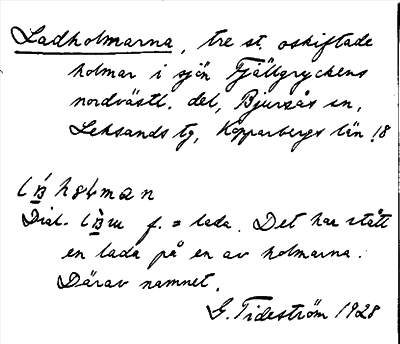 Ladholmarna, tre st. oskiftade
holmar i sjön Fjällgryckens
nordvästl. del, Bjursås sn,
Leksands tg, Kopparbergs län.
Dial. f. = lada. Det har stått
en lada på en av holmarna.
Därav namnet.
G. Tideström 1928